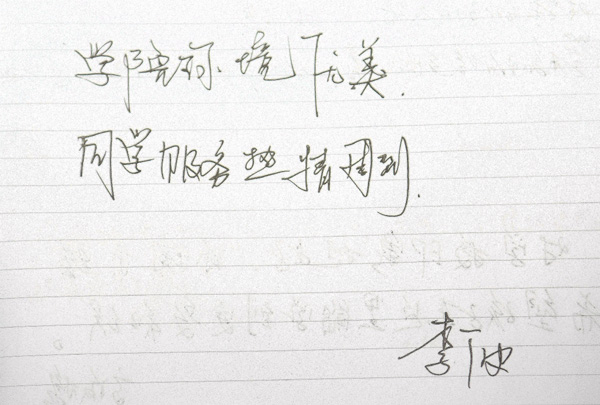 学院环境优美.
同学服务热情周到.
李